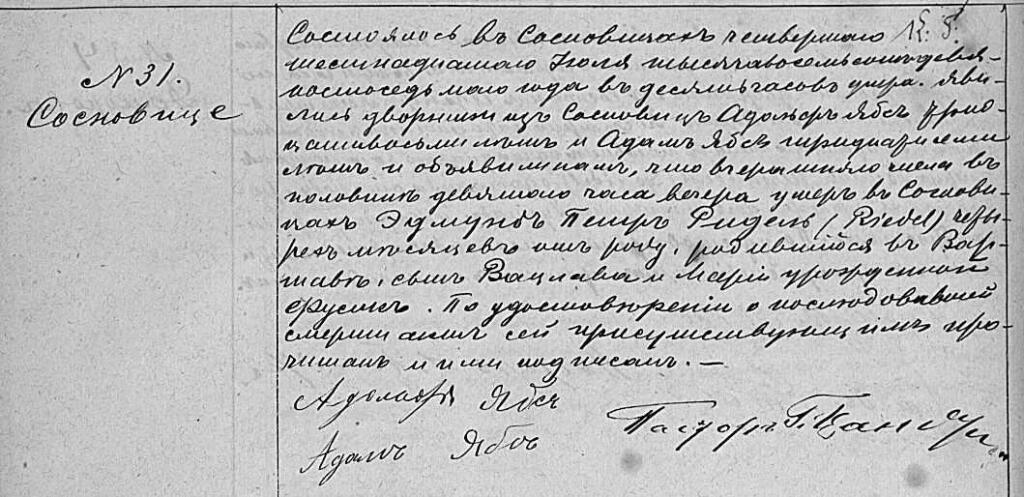 N 31.
Сосновице
Состоялось въ Сосновицахъ четвертаго
шестнадцатаго Іюля тысяча восемьсотъ девя-
ностоседьмаго года въ десять часовъ утра. Яви-
лись дворники изъ Сосновицъ Адольфъ Ябсъ трид-
цативосьми лѣтъ и Адамъ Ябсъ тридцати семи
лѣтъ и объявили намъ, что вчерашняго числа въ
половинѣ девятаго часа вечера умеръ въ Соснови-
цахъ Эдмундъ Петръ Ридель (Riedel) четы-
рехъ мѣсяцевъ отъ роду, родившійся въ Вар-
шавѣ, сынъ Вацлава и Маріи урожденной
По удостовѣреніи о послѣдовавшей
смерти актъ сей присутствующимъ про-
читанъ и ими подписанъ. —
Адольфъ Ябсъ
Адамъ Ябсъ
Пасторъ